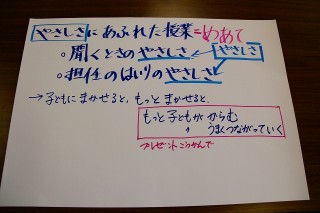 やさしさにあふれた授業=めあて
。聞くときのやさしさ←やさしさ
。担任のはいりのやさしさ
→子どもにまかせると,もっとまかせると,
もっと子どもがからむ
↑うまくつながっていく
プレゼントこうかんで